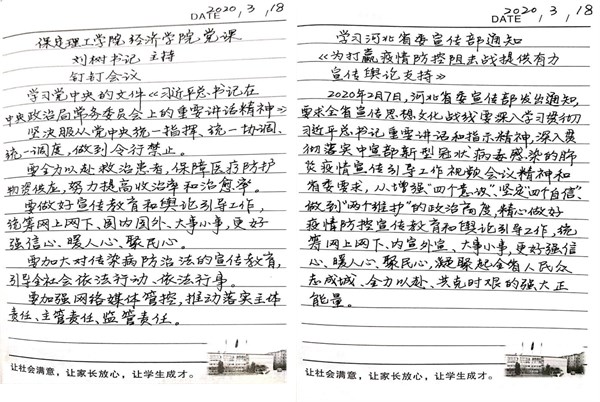 DATE 2020 / 3 / 18
保定理工学院经济学院党课
刘树书记 主持
钉钉会议
学习党中央的文件《习近平总书记在
中央政治局常务委员会上的重要讲话精神》
坚决服从党中央统一指挥、统一协调、
统一调度，做到令行禁止。
要全力以赴救治患者，保障医疗防护
物资供应，努力提高收治率和治愈率。
要做好宣传教育和舆论引导工作，
统筹网上网下、国内国外、大事小事，更好
强信心、暖人心、聚民心。
要加大对传染病防治法的宣传教育，
引导全社会依法行动、依法行事。
要加强网络媒体管控，推动落实主体
责任、主管责任、监管责任。
让社会满意，让家长放心，让学生成才。
DATE 2020 / 3 / 18
学习河北省委宣传部通知
《为打赢疫情防控阻击战提供有力
宣传舆论支持》
2020年2月7日，河北省委宣传部发出通知，
要求全省宣传思想文化战线要深入学习贯彻
习近平总书记重要讲话和指示精神，深入贯
彻落实中宣部新型冠状病毒感染的肺
炎疫情宣传引导工作视频会议精神和
省委要求，从增强“四个意识”、坚定“四个自信”、
做到“两个维护”的政治高度，精心做好
疫情防控宣传教育和舆论引导工作，统
筹网上网下、内宣外宣、大事小事，更好强信
心、暖人心、聚民心，凝聚起全省人民众
志成城、全力以赴、共克时艰的强大正
能量。
让社会满意，让家长放心，让学生成才。